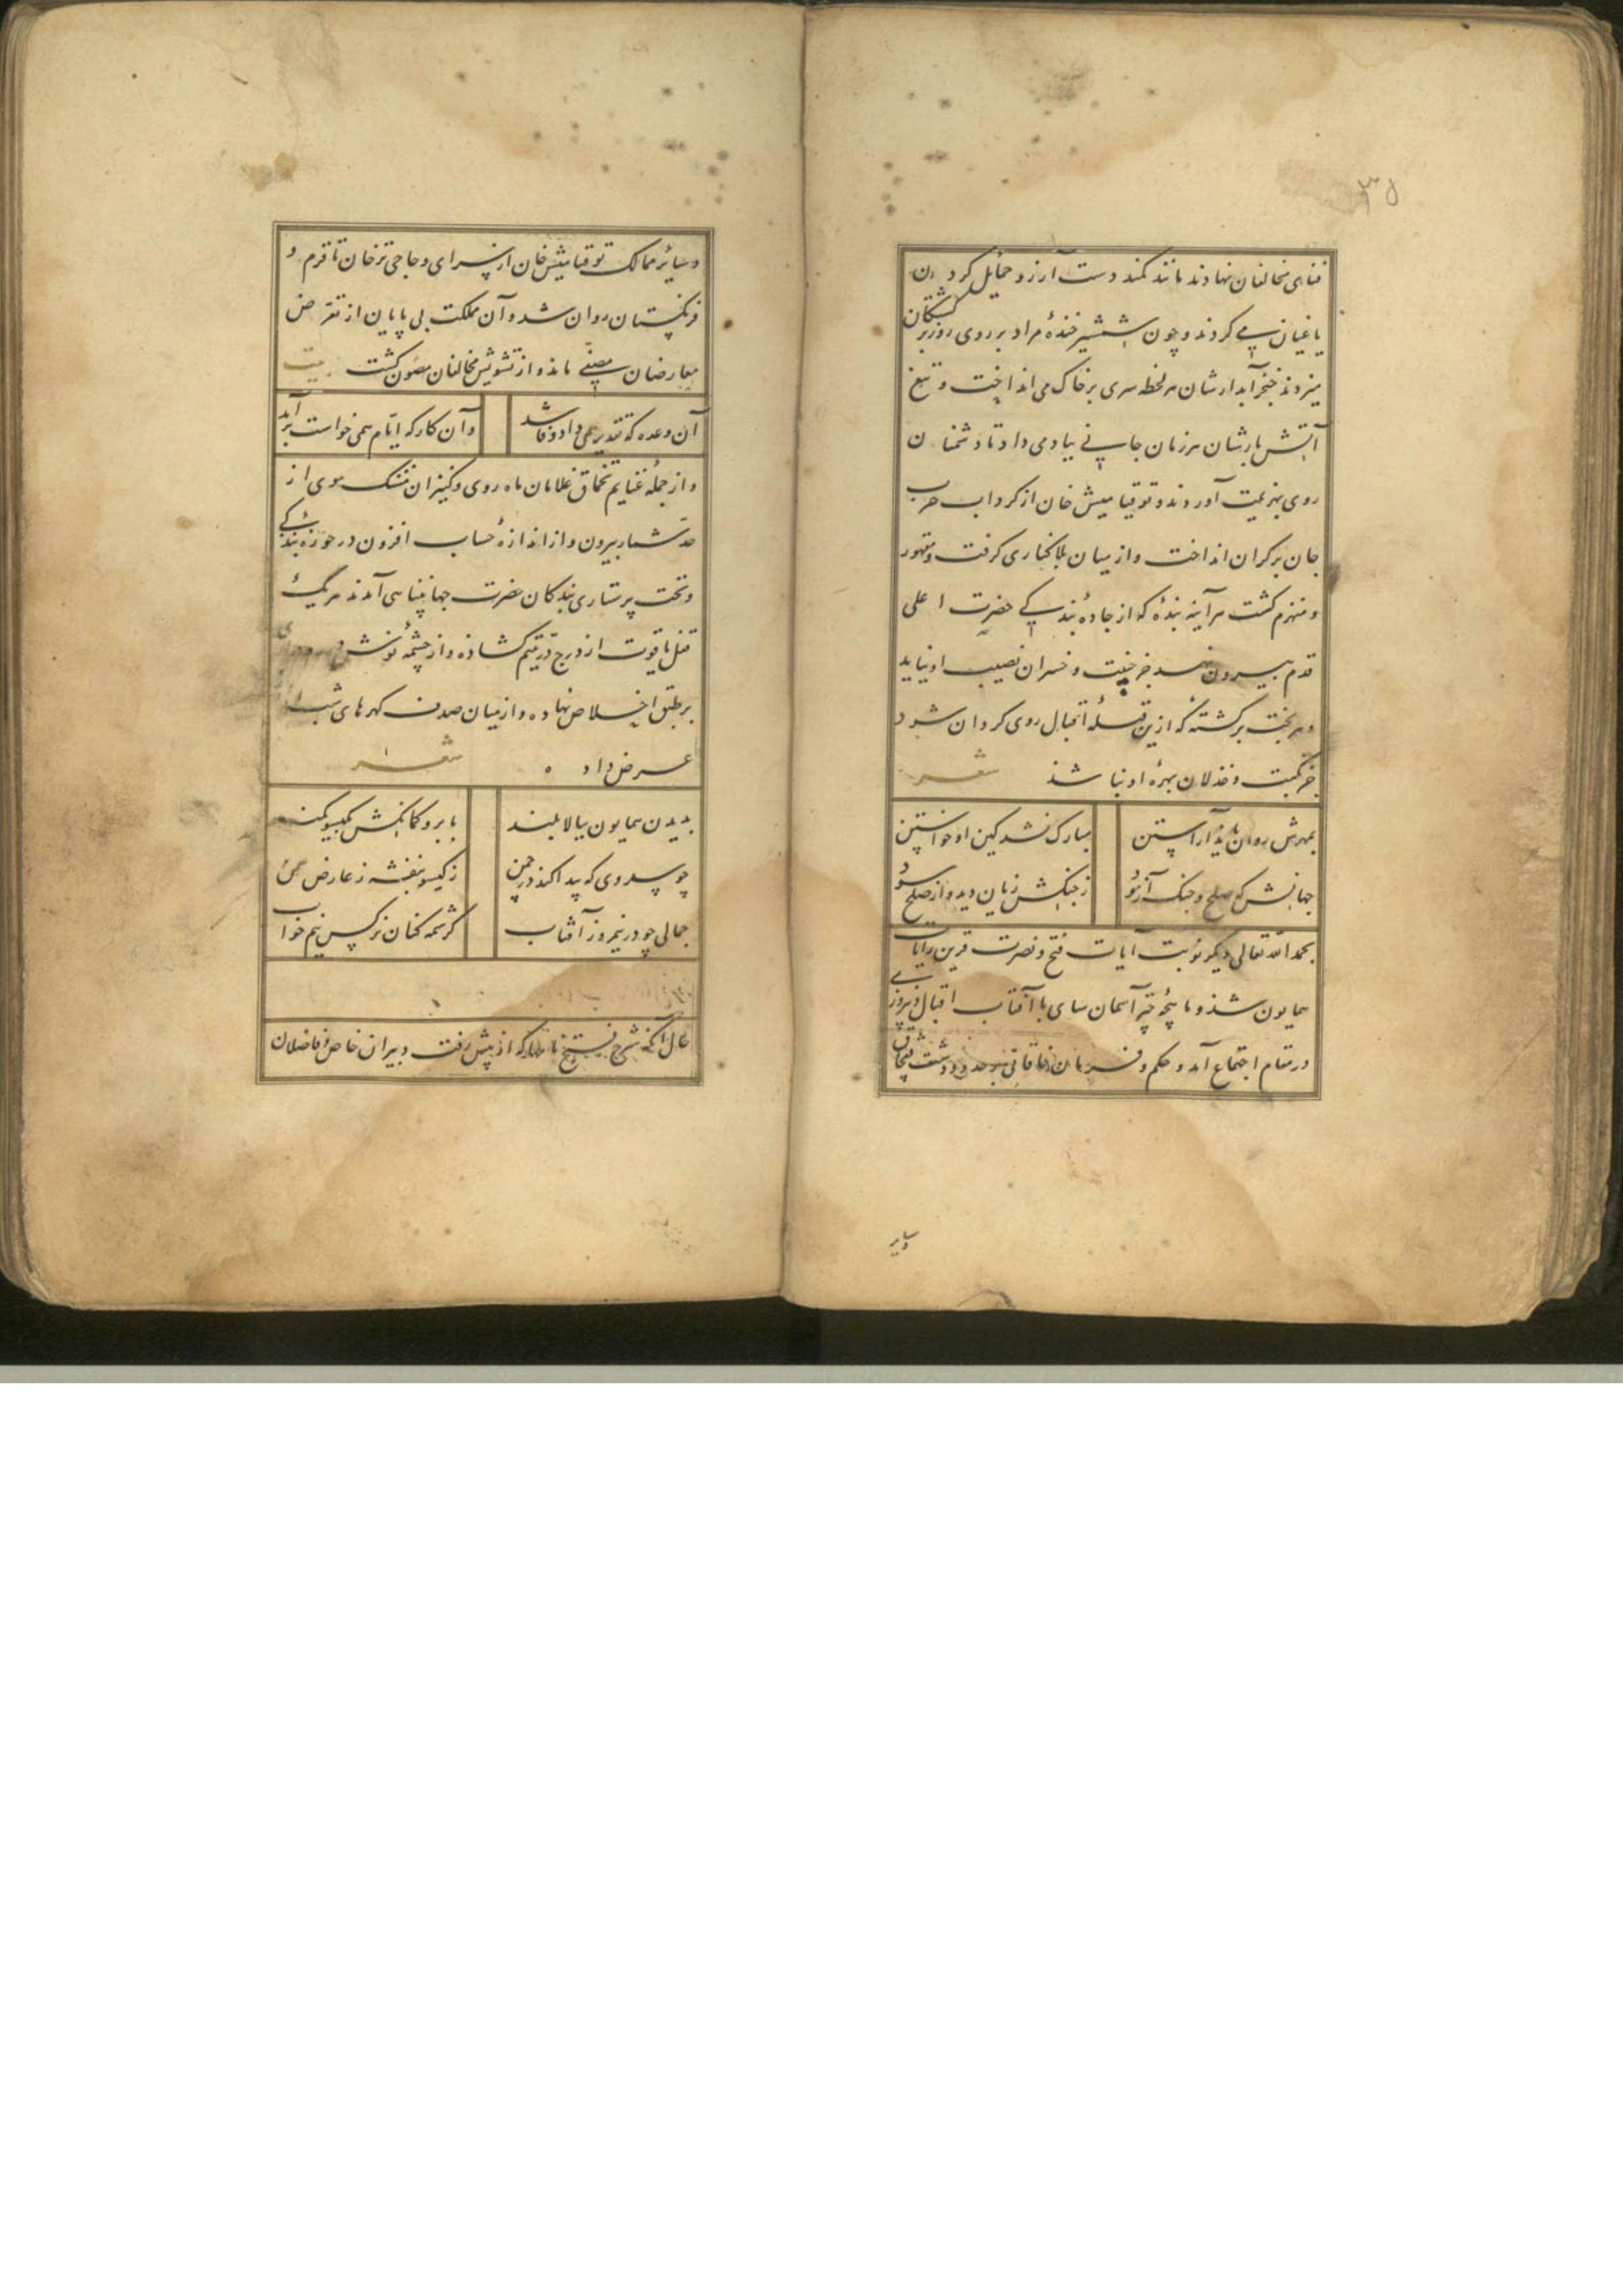 ۳۵
قفای مخالفان نهادند مانند کمند دست آرزو حمایل کردن
یاغیان می کردند و چون شمشیر خندهٔ مراد بر روی روزبرکشتکان
میزدند خنجر آبدارشان هر لحظه سری بر خاک می انداخت و تیغ
آتش بارشان هر زمان جانی بباد می داد تا دشمنان
روی بهزیمت آوردند و توقتامیش خان از کرداب حرب
جان بر کران انداخت و از میان بلا کناری کرفت و مقهور
و منهزم کشت هر آینه بندهٔ که از جادهٔ بندکی حضرت اعلی
قدم بیرون نهد جز خیبت و خسران نصیب او نیاید
و هر بخت برکشته که ازین قبلهٔ اقبال روی کردان شود
جز نکبت و خذلان بهرهٔ او نباشد شعر
بمهرش روان باید آراستن مبارک نشد کین او خواستن
جهانش که صلح و جنک آزمود ز جنکش زیان دید و از صلح سود
بحمد الله تعالی دیکر نوبت آیات فتح و نصرت قرین رایات
همایون شد و ماهچهٔ چتر آسمان سای با آفتاب اقبال و فیروزی
در مقام اجتماع آمد و حکم و فرمان خاقانی بر حدود دشت قبچاق
و سایر
و سایر ممالک توقتامیش خان از سرای و حاجی ترخان تا قرم و
فرنکستان روان شد و آن مملکت بی پایان از تعرض
معارضان مصفی ماند و از تشویش مخالفان مصون کشت بیت
آن وعده که تقدیر همی داد وفا شد و آن کار که ایام همی خواست برآمد
و از جملهٔ غنایم قبچاق غلامان ماه روی و کنیزان مشک موی از
حد شمار بیرون و از اندازهٔ حساب افزون در حوزهٔ بندکی
و تحت پرستاری بندکان حضرت جهانپناهی آمدند هر یک
قفل یاقوت از درج در یتیم کشاده و از چشمهٔ نوش
بر طبق اخلاص نهاده و از میان صدف کهرهای شب
عرض داد شعر
بدیدن همایون ببالا بلند بابرو کمانکش بکیسو کمند
چو سروی که پیدا کند در چمن ز کیسو بنفشه ز عارض سمن
جمالی چو در نیمروز آفتاب کرشمه کنان نرکس نیم خواب
حال آنکه شرح فتح نامها که از پیش رفت دبیران خاص و فاضلان